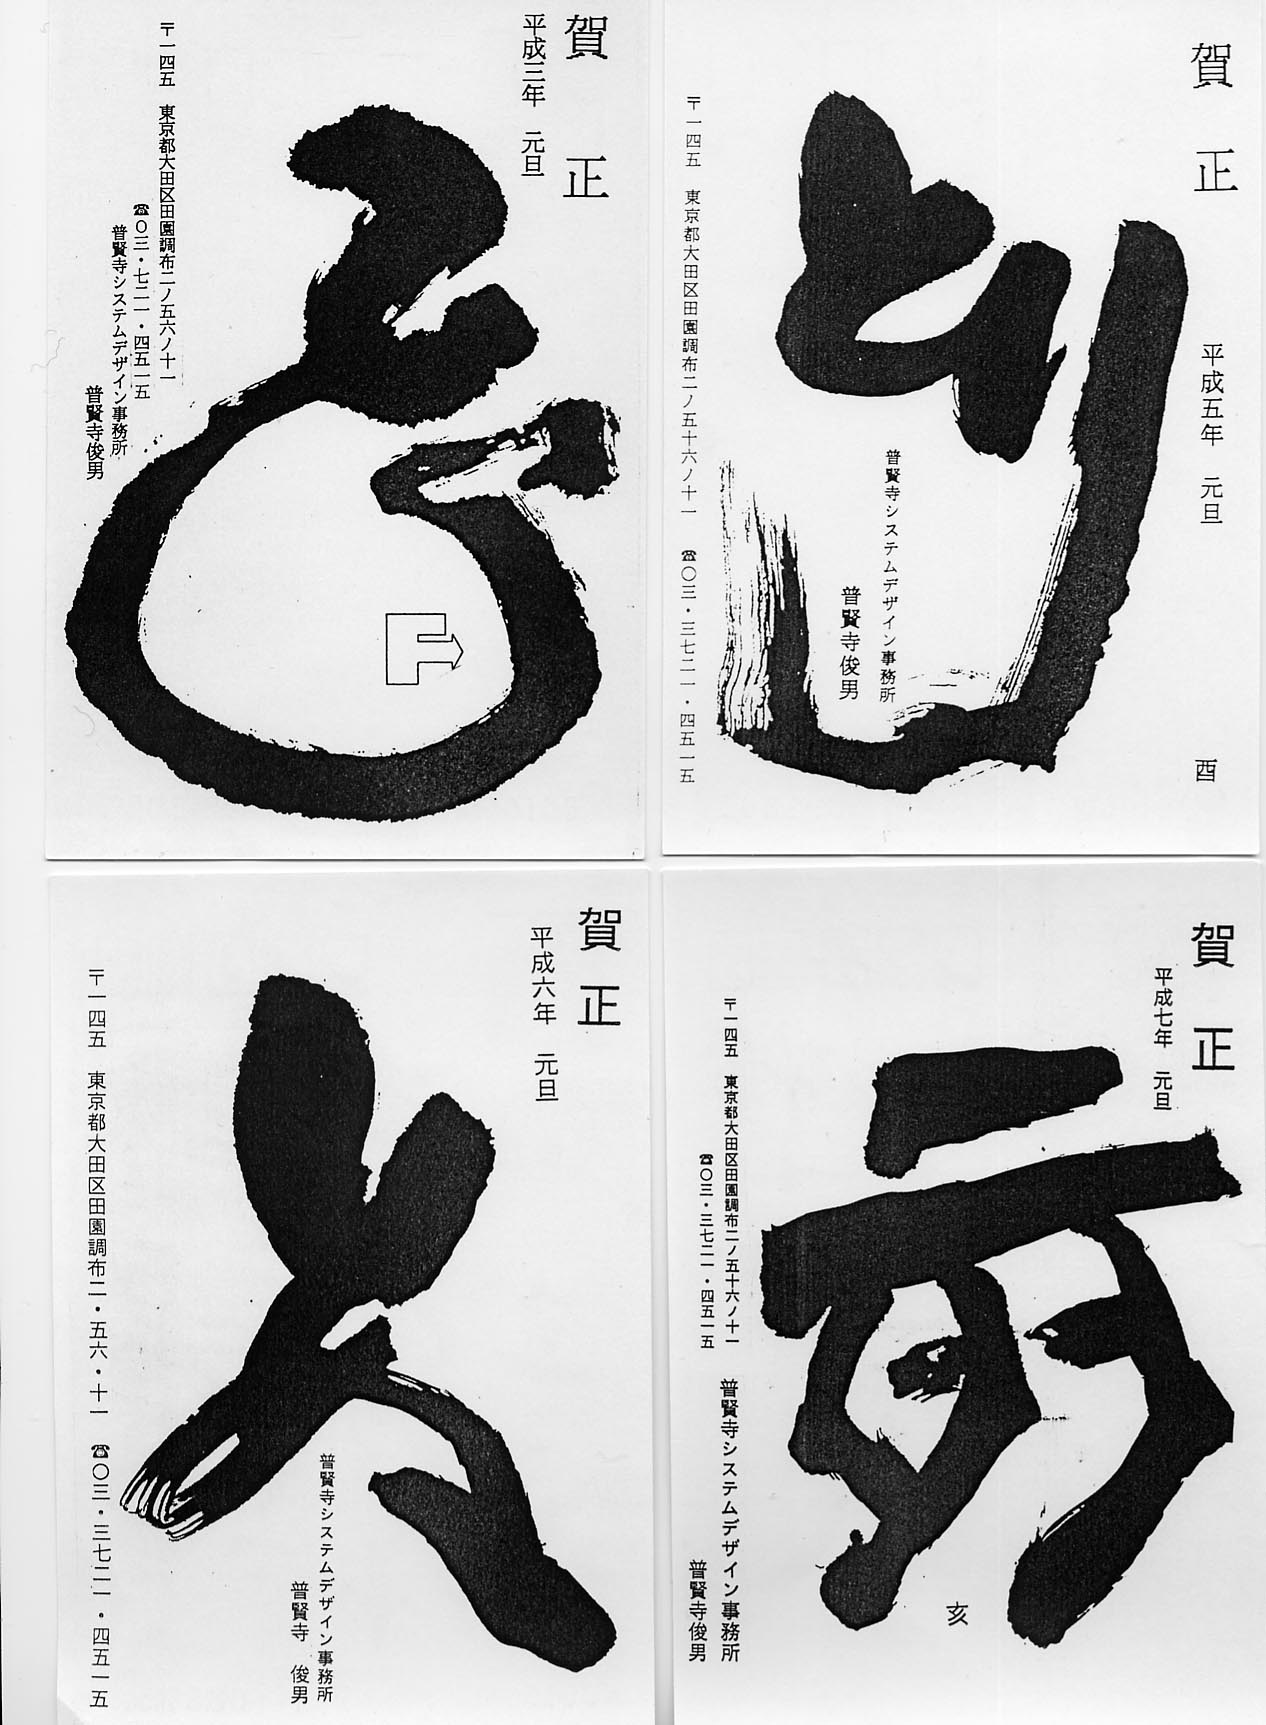 賀正
平成三年 元旦
〒一四五 東京都大田区田園調布二ノ五六ノ十一
☎〇三・七二一・四五一五
普賢寺システムデザイン事務所
普賢寺俊男
F
賀正
平成五年 元旦
酉
普賢寺システムデザイン事務所
普賢寺俊男
〒一四五 東京都大田区田園調布二ノ五十六ノ十一 ☎〇三・三七二一・四五一五
賀正
平成六年 元旦
普賢寺システムデザイン事務所
普賢寺 俊男
〒一四五 東京都大田区田園調布二・五六・十一 ☎〇三・三七二一・四五一五
賀正
平成七年 元旦
亥
〒一四五 東京都大田区田園調布二ノ五十六ノ十一
☎〇三・三七二一・四五一五
普賢寺システムデザイン事務所
普賢寺俊男